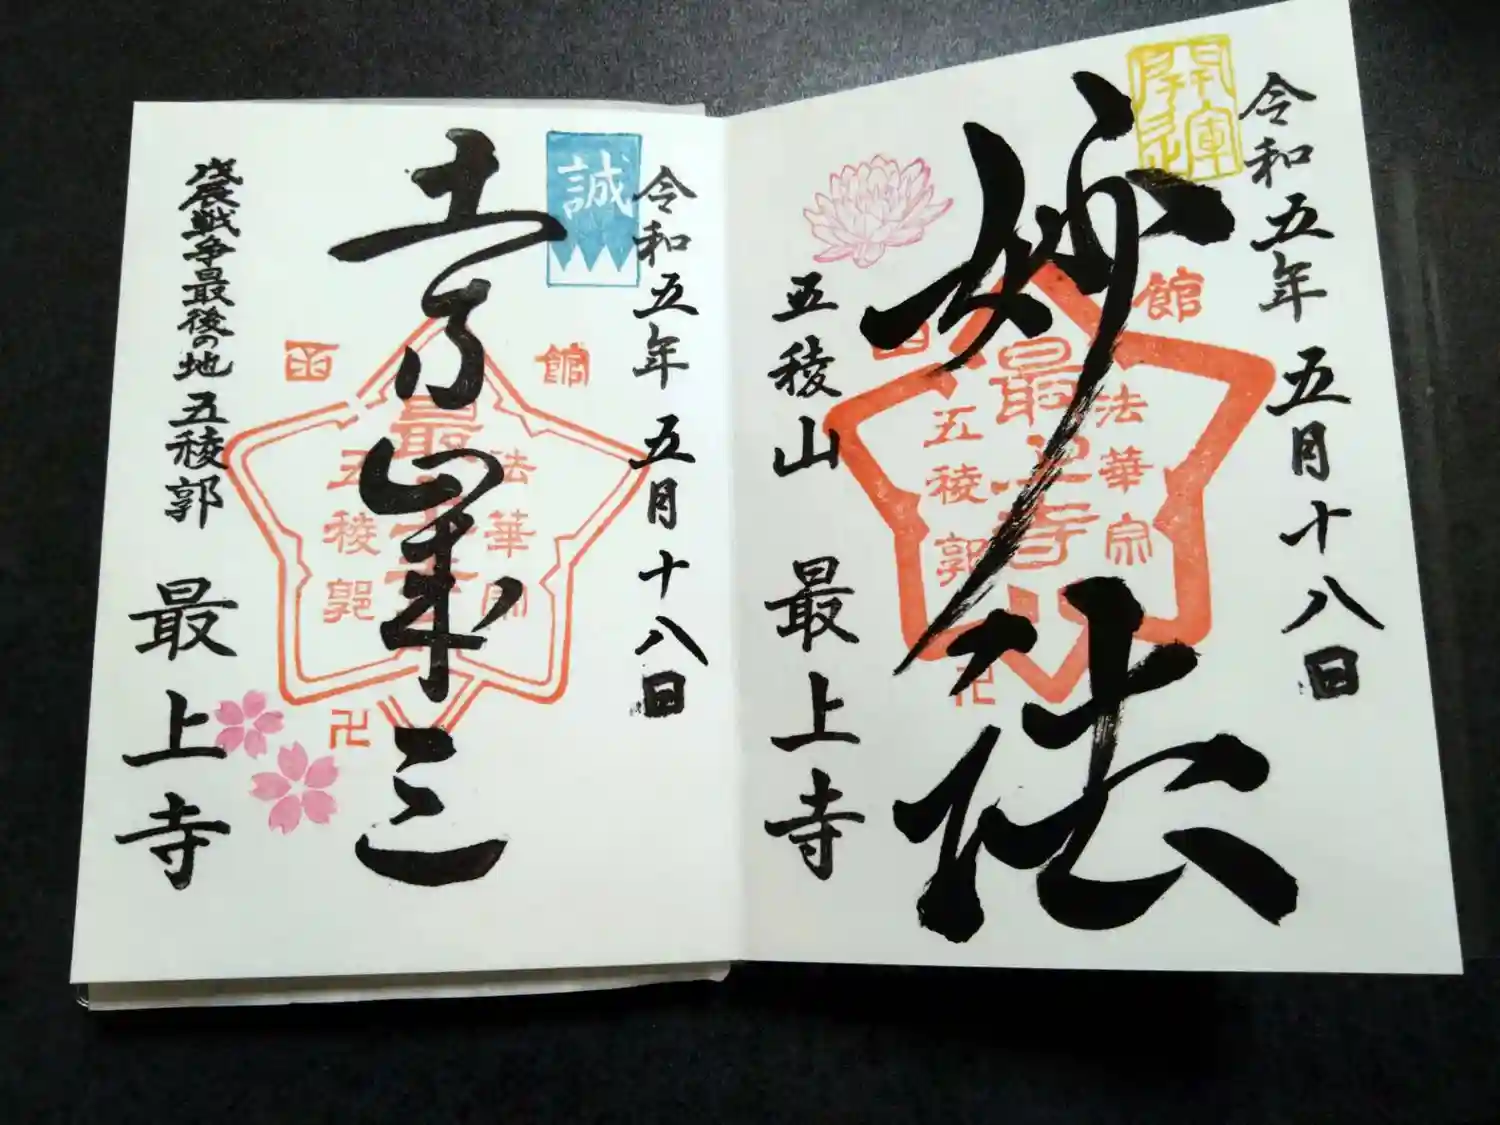 令和五年 五月十八日
開運
妙法
函館
法華宗
最上寺
五稜郭
卍
五稜山 最上寺
令和五年 五月十八日
誠
土方歳三
函館
法華宗
最上寺
五稜郭
卍
戊辰戦争最後の地 五稜郭 最上寺